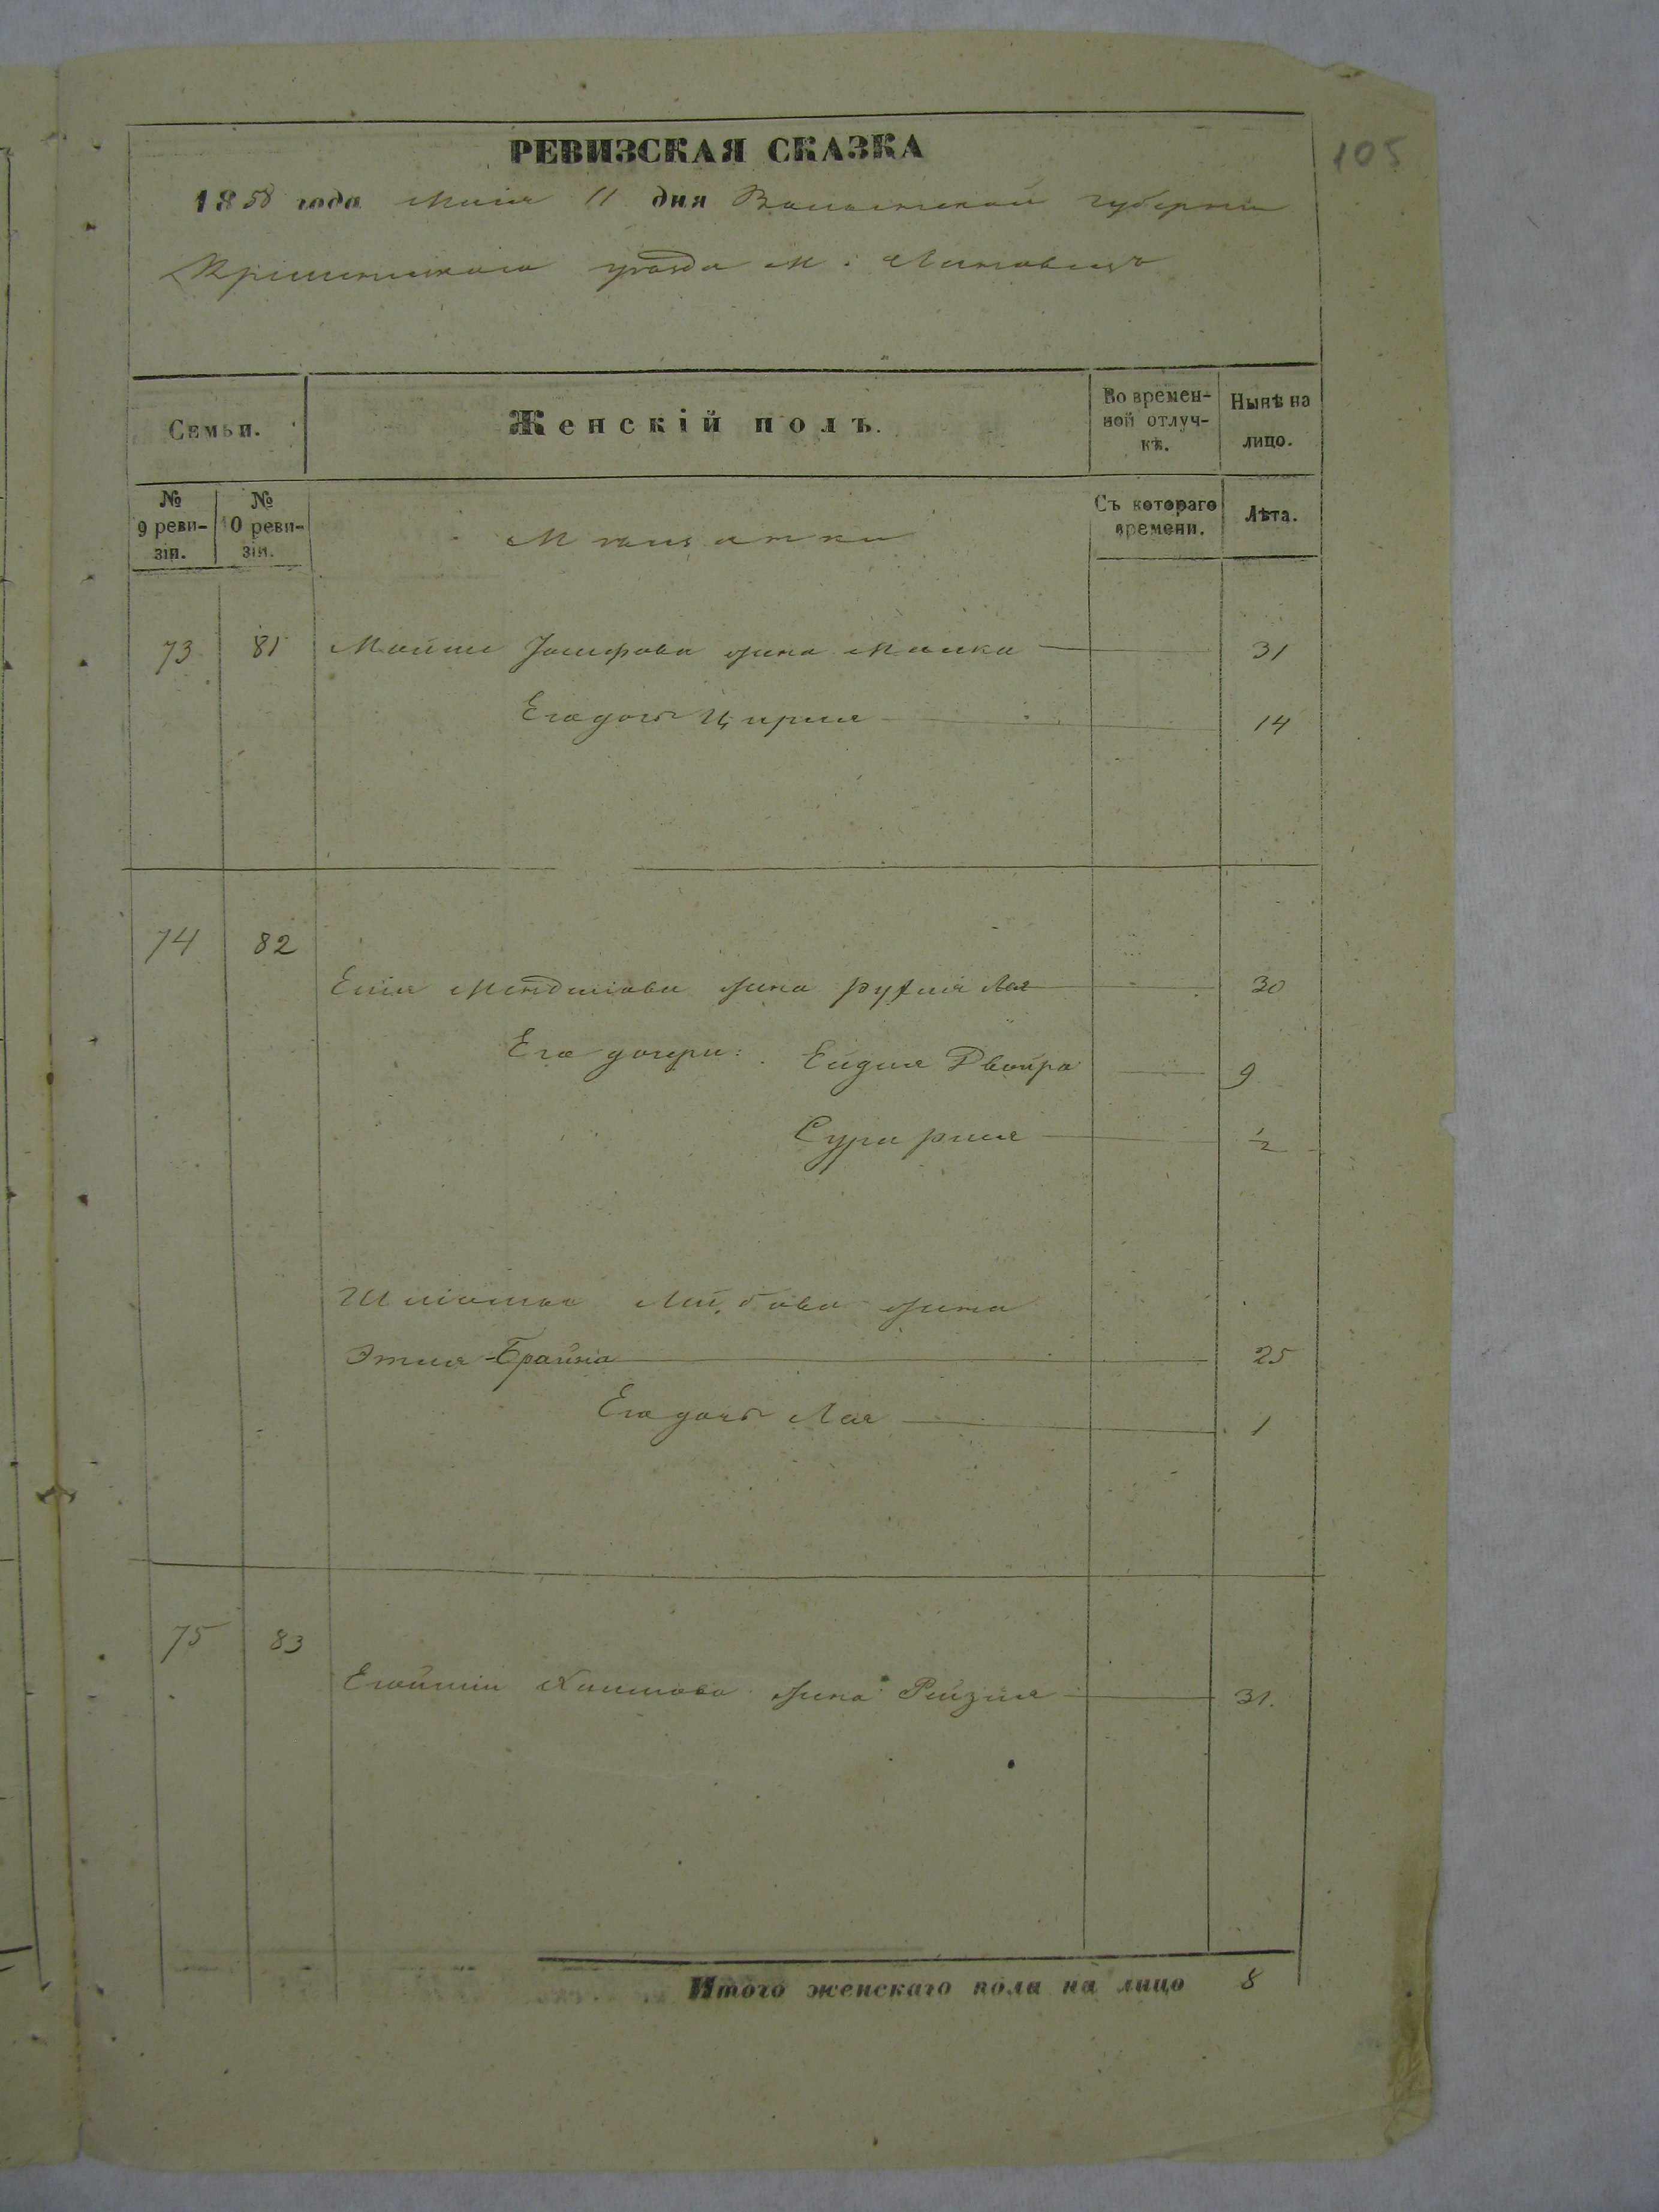 105
РЕВИЗСКАЯ СКАЗКА
1858 года Маія 11 дня Волынской губерніи
Кременецкаго уѣзда М.
Семьи.
Женскій полъ.
Во времен-
ной отлуч-
кѣ.
Нынѣ на
лицо.
№
9 реви-
зіи.
№
10 реви-
зіи.
Мѣщанки
Съ котораго
времени.
Лѣта.
73 81 Мошки Іосифова жена Малка 31
Его дочь Цирля 14
74 82
Мендиліова жена Рухля Лея 30
Его дочери: Ейдля Двойра 9
Сура риля 1/2
Шліомы Лейбова жена
Этля-Брайна 25
Его дочь Лея 1
75 83
жена Рейзля 31.
Итого женскаго пола на лицо 8